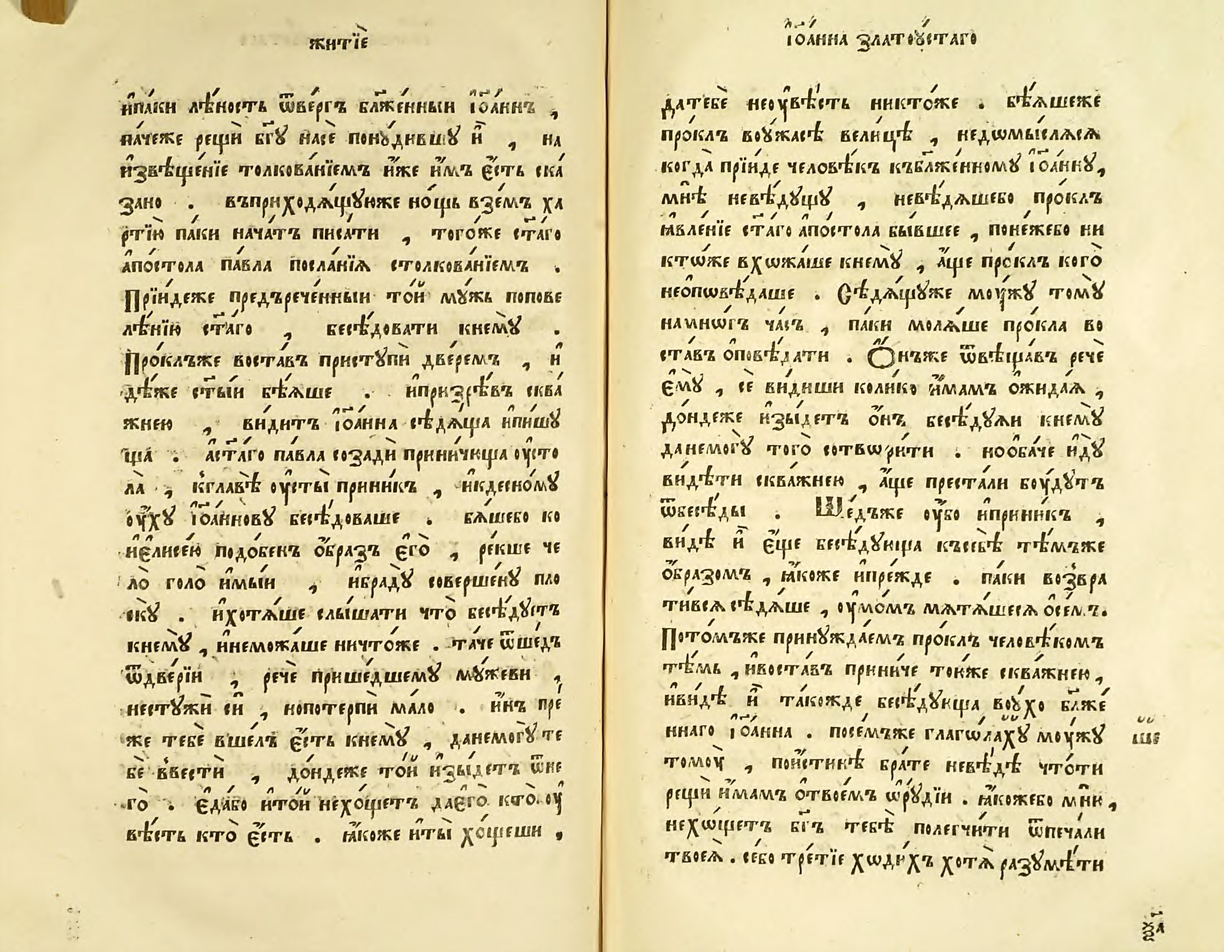 житїѐ
и҆паки лѣность ѿвергъ бл҃же́нныи і҆ѡа́ннъ ,
па́чеже рещи̂ бг҃ꙋ насѐ пону́дившꙋ и҆̀ , на
и҆звѣще́нїе толкова́нїемъ и҆́же и҆́мъ є҆́сть ска
зано . въприходѧ́щуюже но́щь взе́мъ ха
рті́ю па́ки нача́тъ писати , того́же ст҃а́го
а҆по́стола па́вла посла́нїѧ столкова́нїемъ .
Прїи́деже предъречѐнныи то́й му́жь попове
лѣ́нїю ст҃а́го , бесѣ́довати кнемꙋ̀ .
Про́клъже воста́въ приступѝ две́ремъ , и҆
дѣ́же ст҃ы́и бѣѧ́ше . и҆призрѣ́въ сква́
жнею , ви́дитъ і҆ѡа́нна сѣдѧ́ща и҆пишꙋ́
ща . а҆ст҃а́го па́вла соза́ди прини́чюща ѹ҆сто
ла̀ , кглавѣ̀ ѹ҆сты̀ прини́къ , и҆кдесно́мꙋ
ѹ҆́хꙋ і҆ѡа́ннову бесѣ́доваше . бѧ́шебо ко
и҆є҆лисе́ю подо́бенъ ѻ҆́бразъ є҆го̀ , ре́кше че
ло̀ голо̀ и҆мы́и , и҆брадꙋ̀ соверше́нꙋ пло
скꙋ̀ . и҆хотѧ́ше слы́шати что̀ бесѣ́дꙋетъ
кнемꙋ̀ , и҆немо́жаше ничто́же . та́че ѿше́дъ
ѿдве́рїи , речѐ прише́дшему мꙋ́жеви ,
нестужи̂ си̂ , нопотерпѝ ма́ло . и҆́нъ пре
же тебѐ вше́лъ є҆́сть кнемꙋ̀ , данемогꙋ̀ те
бѐ ввести̂ , до́ндеже то́й и҆зы́детъ ѿне
го̀ . є҆да́бо и҆то́й нехо́щетъ дає҆го̀ кто̀ ѹ҆
вѣ́сть кто̀ є҆́сть . ꙗ҆́коже и҆ты̀ хо́щеши ,
і҆ѡа́нна златоу́стаго
датебѐ неѹ҆вѣ́сть никто́же . бѣѧ́шеже
про́клъ воу́жасѣ вели́цѣ , недѡмы́слѧсѧ
когда̀ прїи́де человѣ́къ къбл҃же́нному і҆ѡа́нну,
мнѣ̀ невѣ́дущꙋ , невѣ́дѧшебо про́клъ
ꙗ҆вле́нїе ст҃а́го а҆по́стола бы́вшее , поне́жебо ни
ктѡ́же вхѡжа́ше кнемꙋ̀ , а҆́ще про́клъ кого̀
неѻ҆пѡвѣ́даше . Сѣдѧ́щꙋже моу́жꙋ томꙋ̀
намно́гъ ча́съ , па́ки молѧ́ше про́кла во
ста́въ ѻ҆повѣ́дати . Ѻ҆́нъже ѿвѣща́въ речѐ
є҆мꙋ̀ , сѐ ви́диши коли́ко и҆́мамъ ѻ҆жида́ѧ ,
до́ндеже и҆зы́детъ ѻ҆́нъ бесѣ́дꙋѧи кнемꙋ̀
данемогꙋ̀ того̀ сотвѡри́ти . нооба́че и҆дꙋ̀
ви́дѣти сква́жнею , а҆́ще преста́ли боу́дутъ
ѿбесѣ́ды . Ше́дъже ѹ҆́бо и҆прини́къ ,
ви́дѣ и҆̀ є҆щѐ бесѣ́дꙋюща къ себѣ̀ тѣ́мъже
ѻ҆́бразомъ , ꙗ҆́коже и҆пре́жде . па́ки возвра
ти́всѧ сѣдѧ́ше , ѹ҆мо́мъ мѧтѧ́шесѧ ѻ҆се́мъ.
Пото́мъже принужда́емъ про́клъ человѣ́комъ
тѣ́мь , и҆воста́въ прини́че то́юже сква́жнею,
и҆ви́дѣ и҆̀ та́кожде бесѣ́дꙋюща воу́хо бл҃же
ннаго і҆ѡа́нна . посе́мъже глаго́лахꙋ моу́жꙋ
томоу̀ , пои́стинѣ бра́те невѣ́дѣ что́ти
рещи̂ и҆́мамъ ѻ҆твое́мъ ѡ҆рꙋ́дїи . ꙗ҆́кожебо мню̀ ,
нехѡ́щетъ бг҃ъ тебѣ̀ полегчи́ти ѿпеча́ли
твоеѧ̀ . се́бо тре́тїе хѡди́хъ хотѧ̀ разꙋмѣ́ти